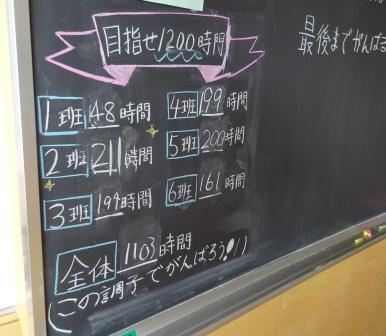 目指せ1200時間
最後までがんば
1班 48時間
2班 211時間
3班 194時間
4班 199時間
5班 200時間
6班 161時間
全体 1103時間
この調子でがんばろう!!